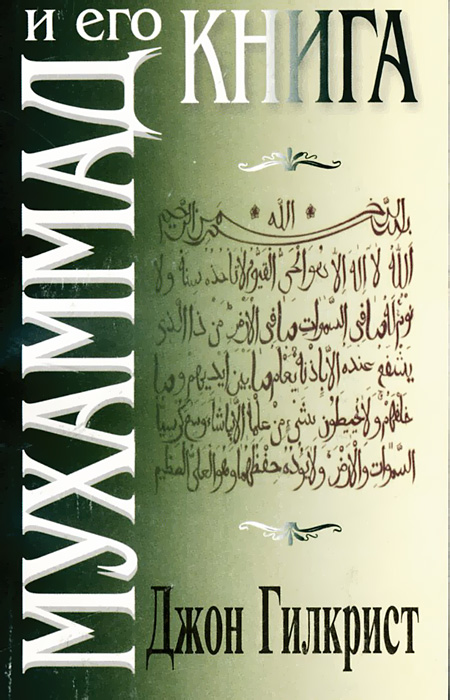 МУХАММАД
и его КНИГА
بسم الله الرحمن الرحيم
الله لا اله الا هو الحي القيوم لا تاخذه سنة ولا
نوم له ما في السموات وما في الارض من ذا الذي
يشفع عنده الا باذنه يعلم ما بين ايديهم وما
خلفهم ولا يحيطون بشيء من علمه الا بما شاء وسع كرسيه
السموات والارض ولا يؤده حفظهما وهو العلي العظيم
Джон Гилкрист